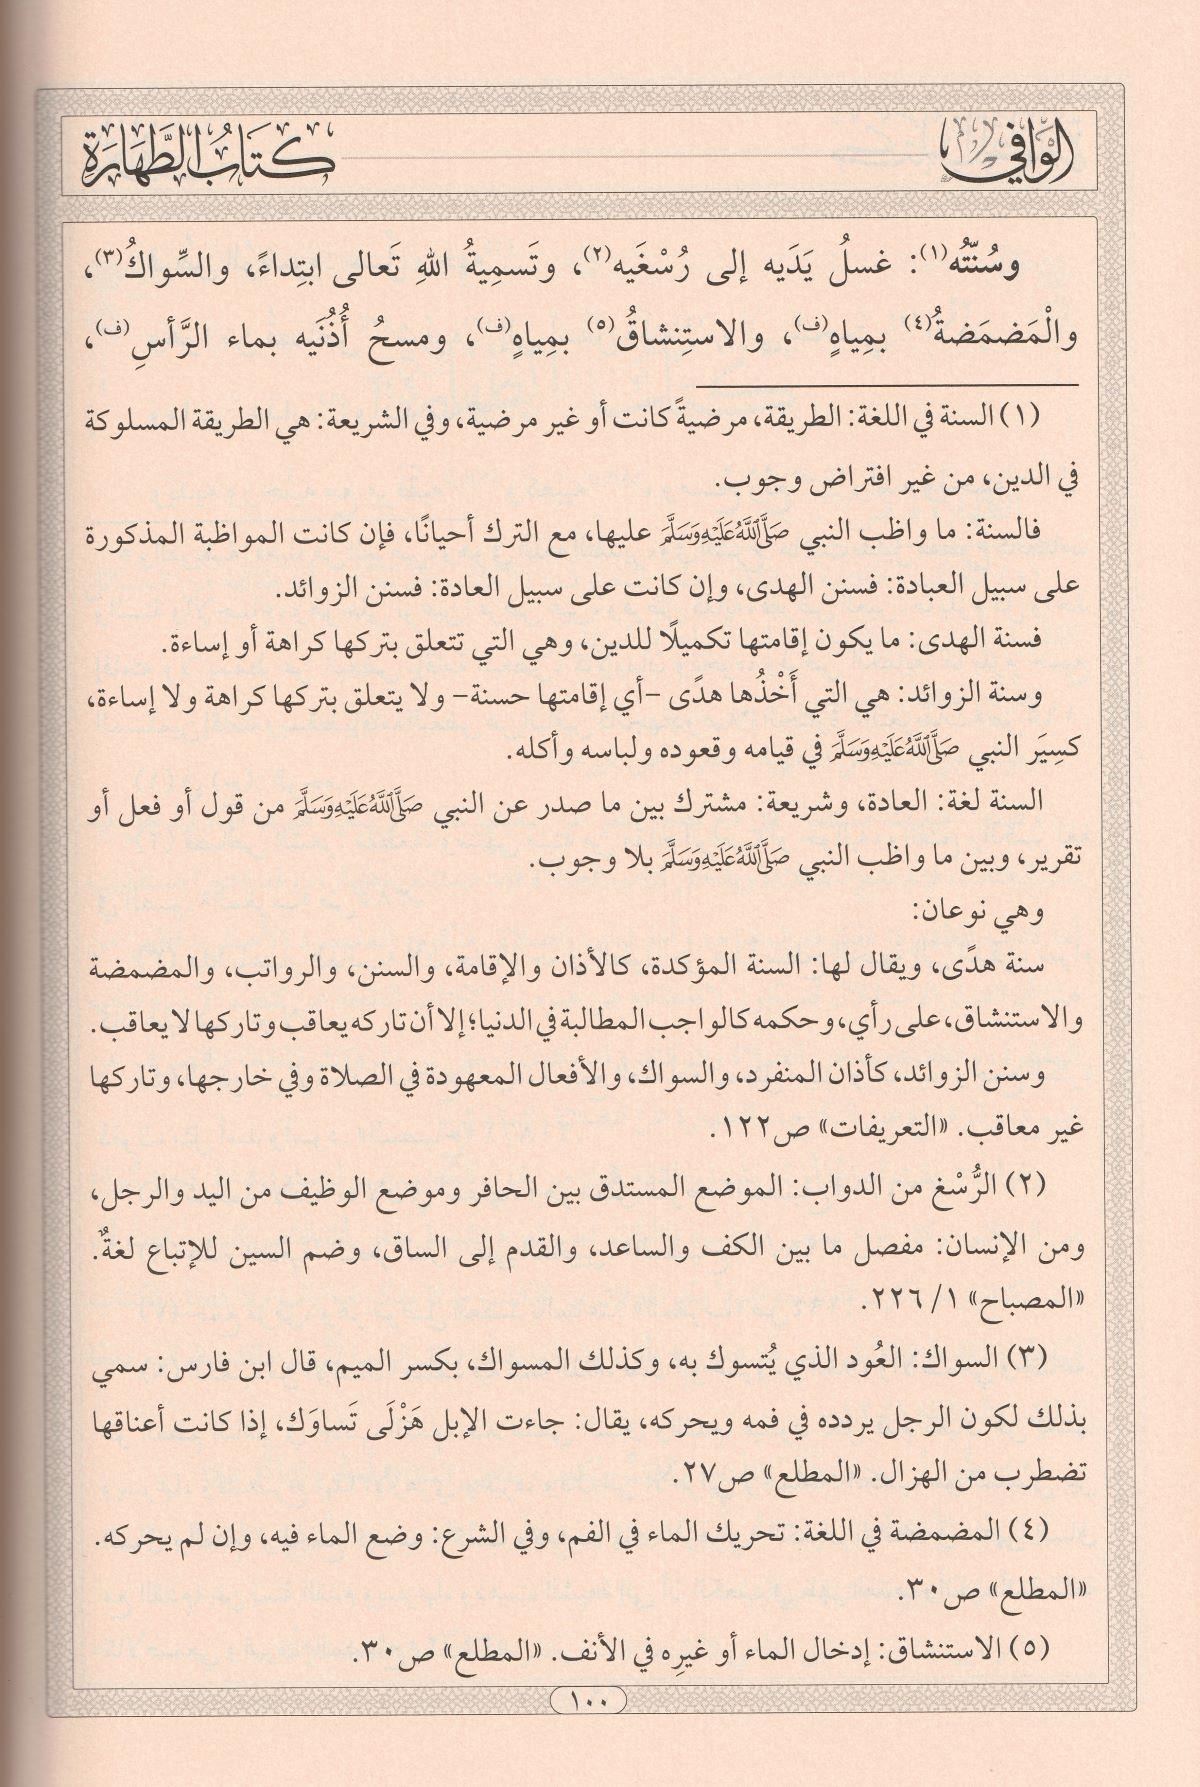 الوافي
كتاب الطهارة
وسُنّتُه(١): غسلُ يَدَيه إلى رُسْغَيه(٢)، وتَسمِيةُ اللهِ تَعالى ابتِداءً، والسِّواكُ(٣)،
والْمَضمَضةُ(٤) بمِياهٍ(ف)، والاستِنشاقُ(٥) بمِياهٍ(ف)، ومسحُ أُذُنَيه بماء الرَّأسِ(ف)،
(١) السنة في اللغة: الطريقة، مرضيةً كانت أو غير مرضية، وفي الشريعة: هي الطريقة المسلوكة
في الدين، من غير افتراض وجوب.
فالسنة: ما واظب النبي صَلَّىٱللَّهُعَلَيْهِوَسَلَّمَ عليها، مع الترك أحيانًا، فإن كانت المواظبة المذكورة
على سبيل العبادة: فسنن الهدى، وإن كانت على سبيل العادة: فسنن الزوائد.
فسنة الهدى: ما يكون إقامتها تكميلًا للدين، وهي التي تتعلق بتركها كراهة أو إساءة.
وسنة الزوائد: هي التي أَخْذُها هدًى -أي إقامتها حسنة- ولا يتعلق بتركها كراهة ولا إساءة،
كسِيَر النبي صَلَّىٱللَّهُعَلَيْهِوَسَلَّمَ في قيامه وقعوده ولباسه وأكله.
السنة لغة: العادة، وشريعة: مشترك بين ما صدر عن النبي صَلَّىٱللَّهُعَلَيْهِوَسَلَّمَ من قول أو فعل أو
تقرير، وبين ما واظب النبي صَلَّىٱللَّهُعَلَيْهِوَسَلَّمَ بلا وجوب.
وهي نوعان:
سنة هدًى، ويقال لها: السنة المؤكدة، كالأذان والإقامة، والسنن، والرواتب، والمضمضة
والاستنشاق، على رأي، وحكمه كالواجب المطالبة في الدنيا؛ إلا أن تاركه يعاقب وتاركها لا يعاقب.
وسنن الزوائد، كأذان المنفرد، والسواك، والأفعال المعهودة في الصلاة وفي خارجها، وتاركها
غير معاقب. «التعريفات» ص١٢٢.
(٢) الرُّسْغ من الدواب: الموضع المستدق بين الحافر وموضع الوظيف من اليد والرجل،
ومن الإنسان: مفصل ما بين الكف والساعد، والقدم إلى الساق، وضم السين للإتباع لغةٌ.
«المصباح» ١/ ٢٢٦.
(٣) السواك: العُود الذي يُتسوك به، وكذلك المسواك، بكسر الميم، قال ابن فارس: سمي
بذلك لكون الرجل يردده في فمه ويحركه، يقال: جاءت الإبل هَزْلَى تَساوَك، إذا كانت أعناقها
تضطرب من الهزال. «المطلع» ص٢٧.
(٤) المضمضة في اللغة: تحريك الماء في الفم، وفي الشرع: وضع الماء فيه، وإن لم يحركه.
«المطلع» ص٣٠.
(٥) الاستنشاق: إدخال الماء أو غيرِه في الأنف. «المطلع» ص٣٠.
١٠٠